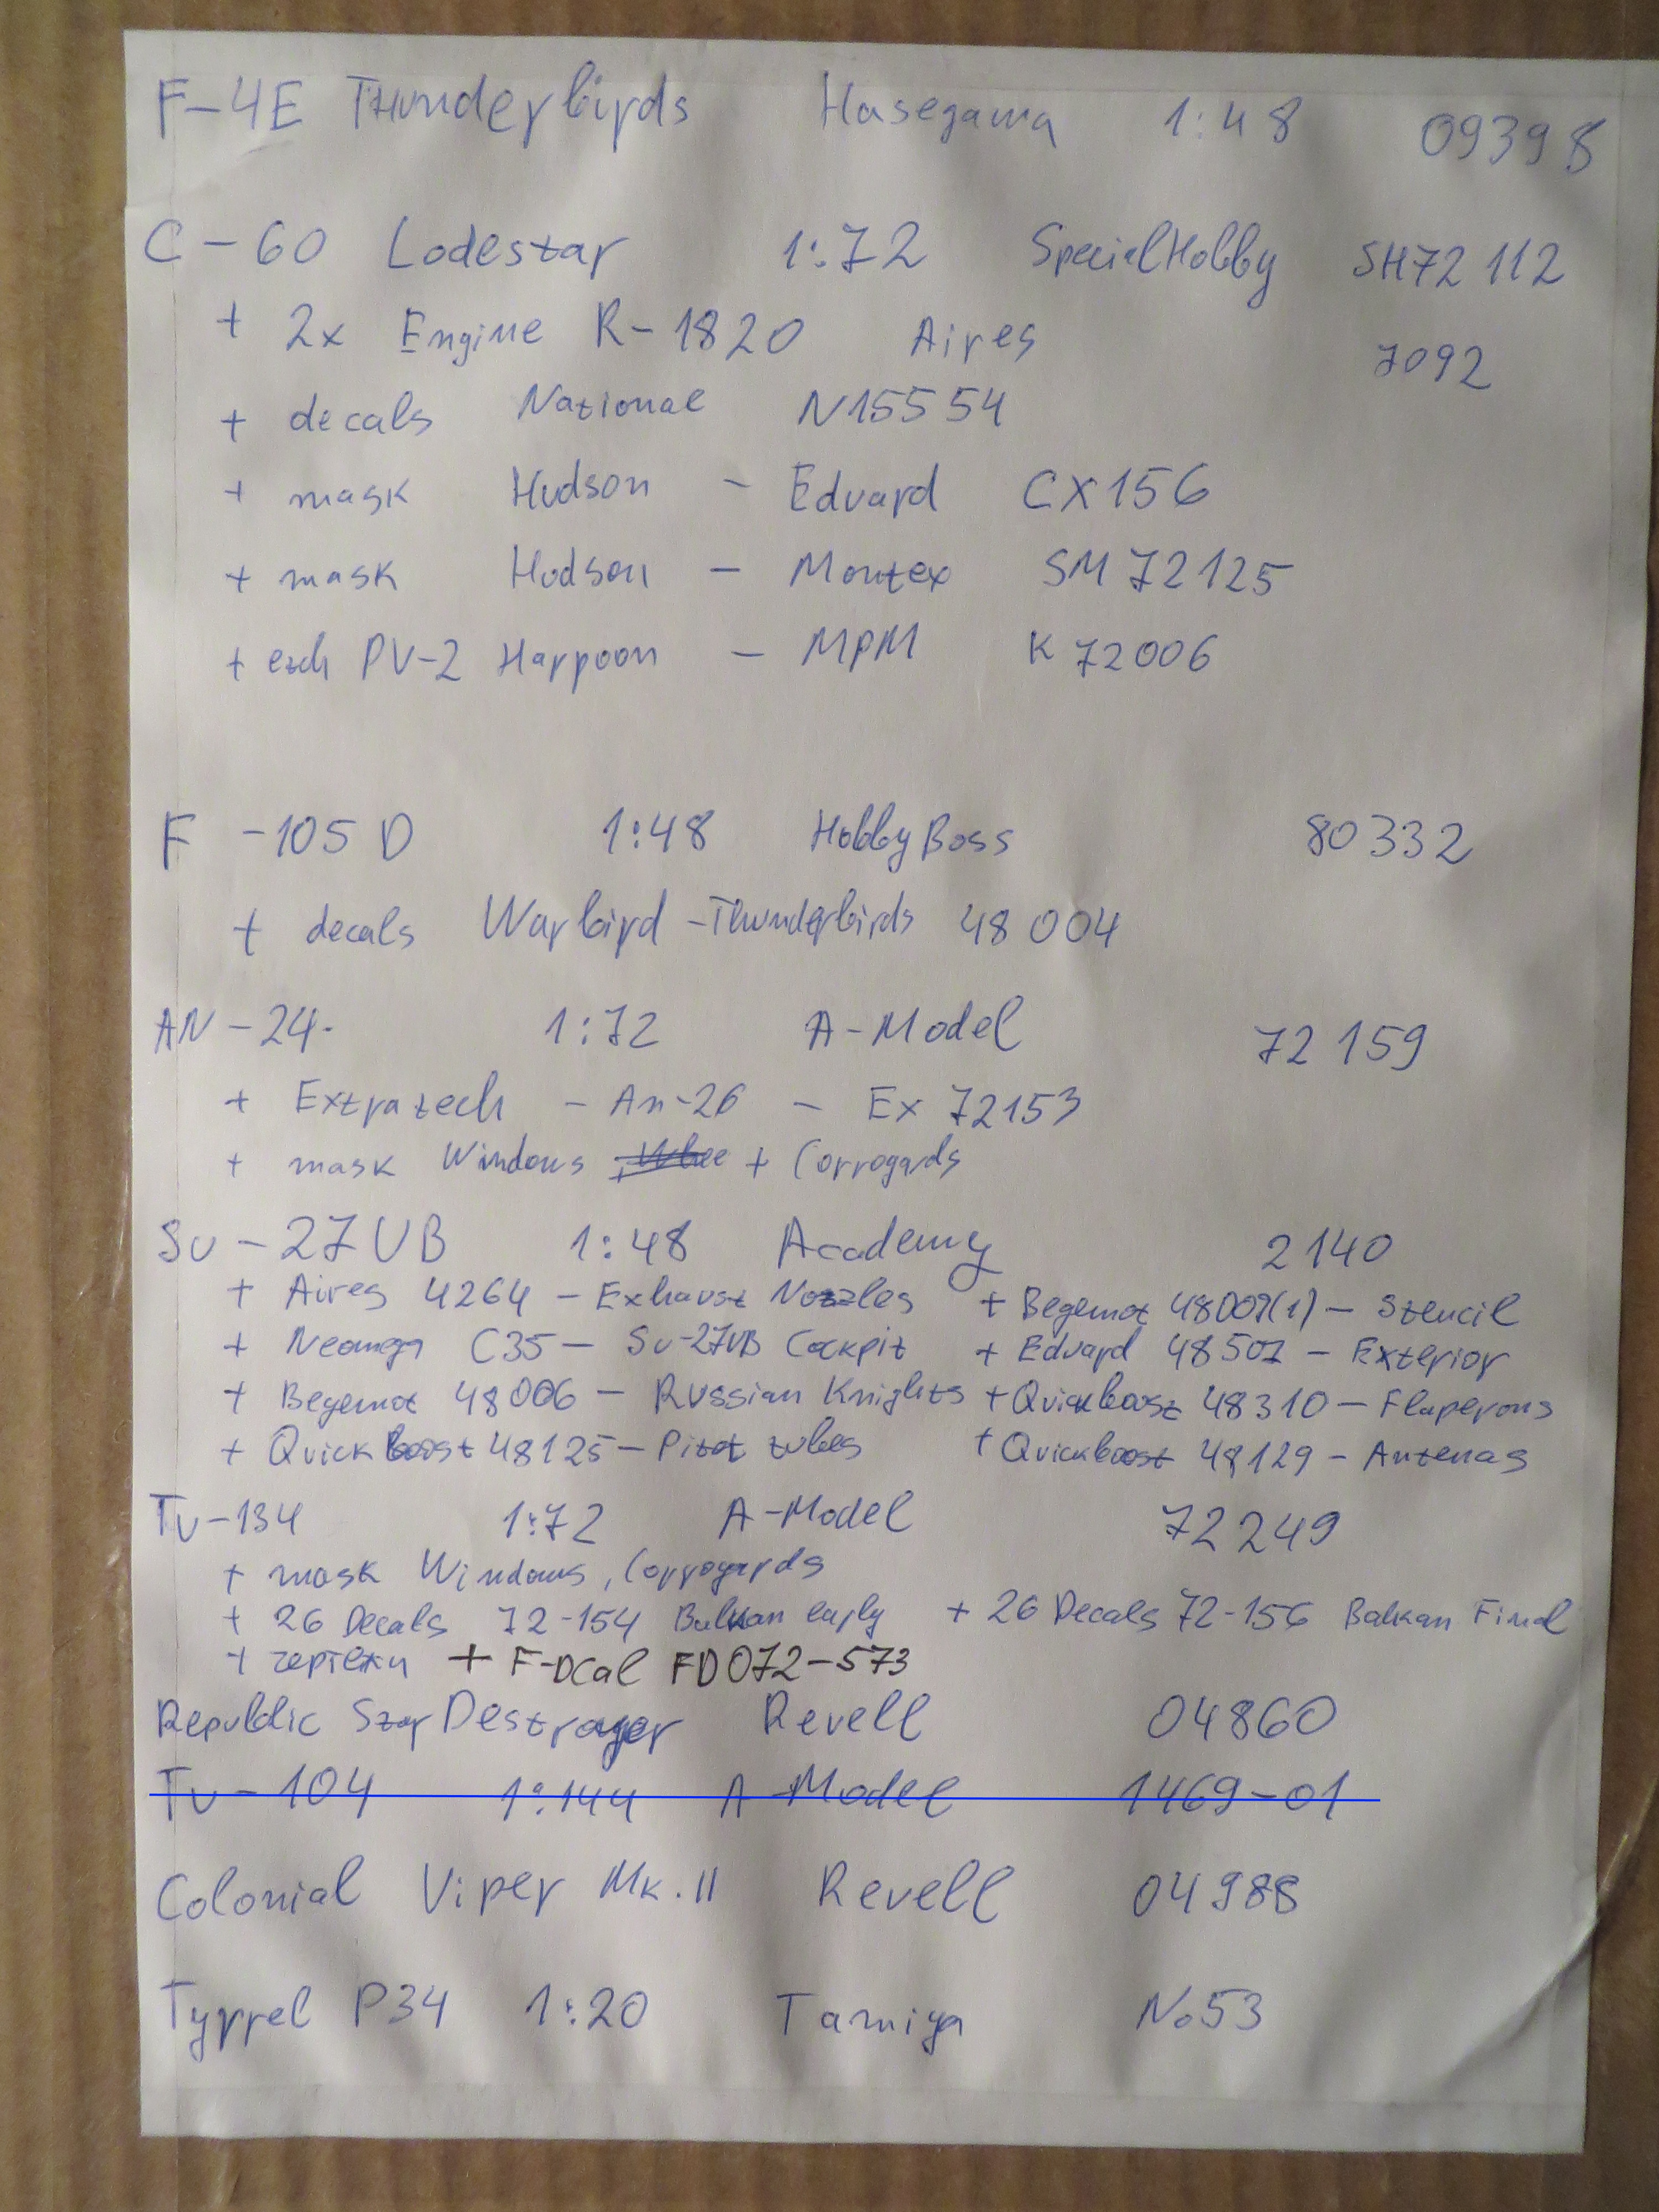 F-4E Thunderbirds Hasegawa 1:48 09398
C-60 Lodestar 1:72 SpecialHobby SH72 112
+ 2x Engine R-1820 Aires 7092
+ decals National N15554
+ mask Hudson - Eduard CX156
+ mask Hudson - Montex SM72125
+ etch PV-2 Harpoon - MPM K72006
F-105D 1:48 HobbyBoss 80332
+ decals Warbird - Thunderbirds 48004
AN-24. 1:72 A-Model 72159
+ Extratech - An-26 - Ex 72153
+ mask Windows + Corrogards
Su-27UB 1:48 Academy 2140
+ Aires 4264 - Exhaust Nozzles + Begemot 48009(1) - Stencil
+ Neomega C35 - Su-27UB Cockpit + Eduard 48507 - Exterior
+ Begemot 48006 - Russian Knights + Quickboost 48310 - Flaperons
+ Quickboost 48125 - Pitot tubes + Quickboost 48129 - Antenas
Tu-134 1:72 A-Model 72249
+ mask Windows, Corrogards
+ 26 Decals 72-154 Balkan early + 26 Decals 72-156 Balkan Final
+ чертежи + F-DCal FD072-573
Republic Star Destroyer Revell 04860
Tu-104 1:144 A-Model 1469-01
Colonial Viper Mk.II Revell 04988
Tyrrel P34 1:20 Tamiya No53